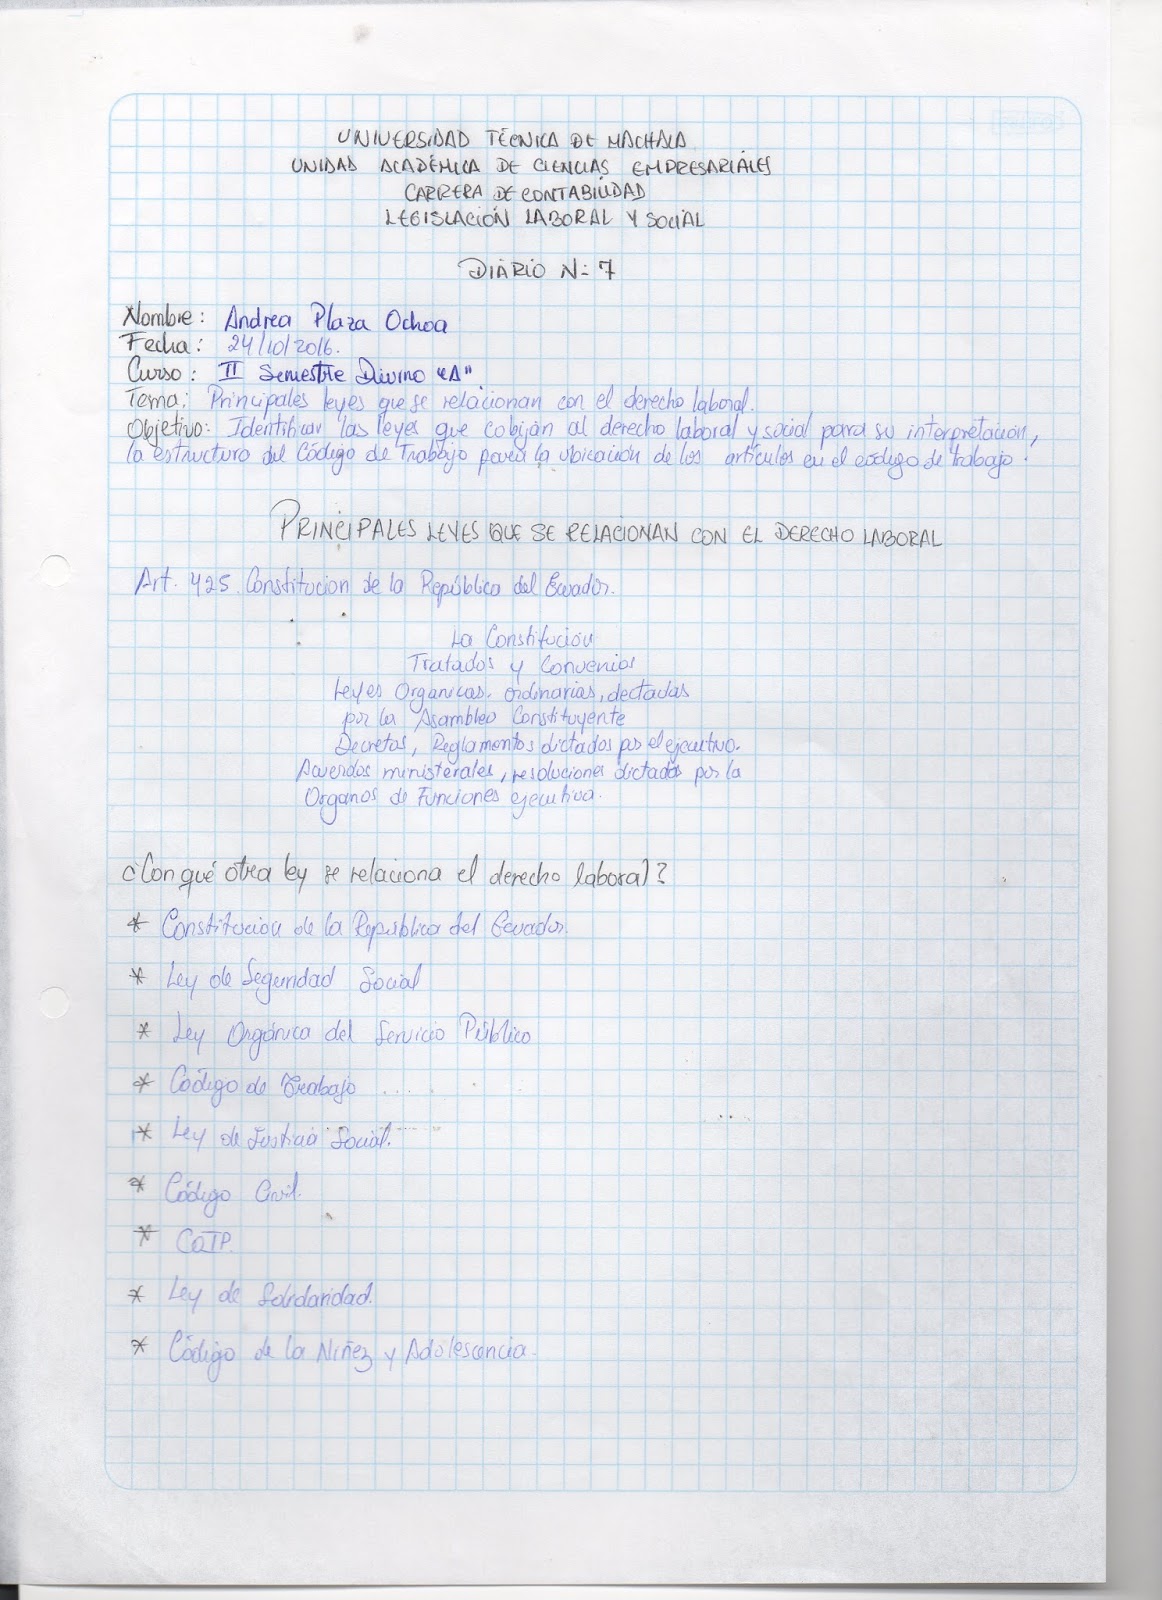 UNIVERSIDAD TÉCNICA DE MACHALA
UNIDAD ACADÉMICA DE CIENCIAS EMPRESARIALES
CARRERA DE CONTABILIDAD
LEGISLACIÓN LABORAL Y SOCIAL
DIARIO N- 7
Nombre: Andrea Plaza Ochoa
Fecha: 24/10/2016.
Curso: II Semestre Diurno "A".
Tema: Principales leyes que se relacionan con el derecho laboral.
Objetivo: Identificar las leyes que cobijan al derecho laboral y social para su interpretación,
la estructura del Código de Trabajo para la ubicación de los artículos en el código de trabajo.
PRINCIPALES LEYES QUE SE RELACIONAN CON EL DERECHO LABORAL
Art. 425. Constitucion de la República del Ecuador.
La Constitución
Tratados y Convenios
Leyes Organicas. ordinarias, dictadas
por la Asamblea Constituyente
Decretos, Reglamentos dictados por el ejecutivo.
Acuerdos ministerales, resoluciones dictados por la
Organos de Funciones ejecutiva.
¿Con qué otra ley se relaciona el derecho laboral?
* Constitución de la República del Ecuador.
* Ley de Seguridad Social
* Ley Orgánica del Servicio Público
* Código de Trabajo
* Ley de Justicia Social.
* Código Civil.
* COTP.
* Ley de Solidaridad.
* Código de la Niñez y Adolescencia.